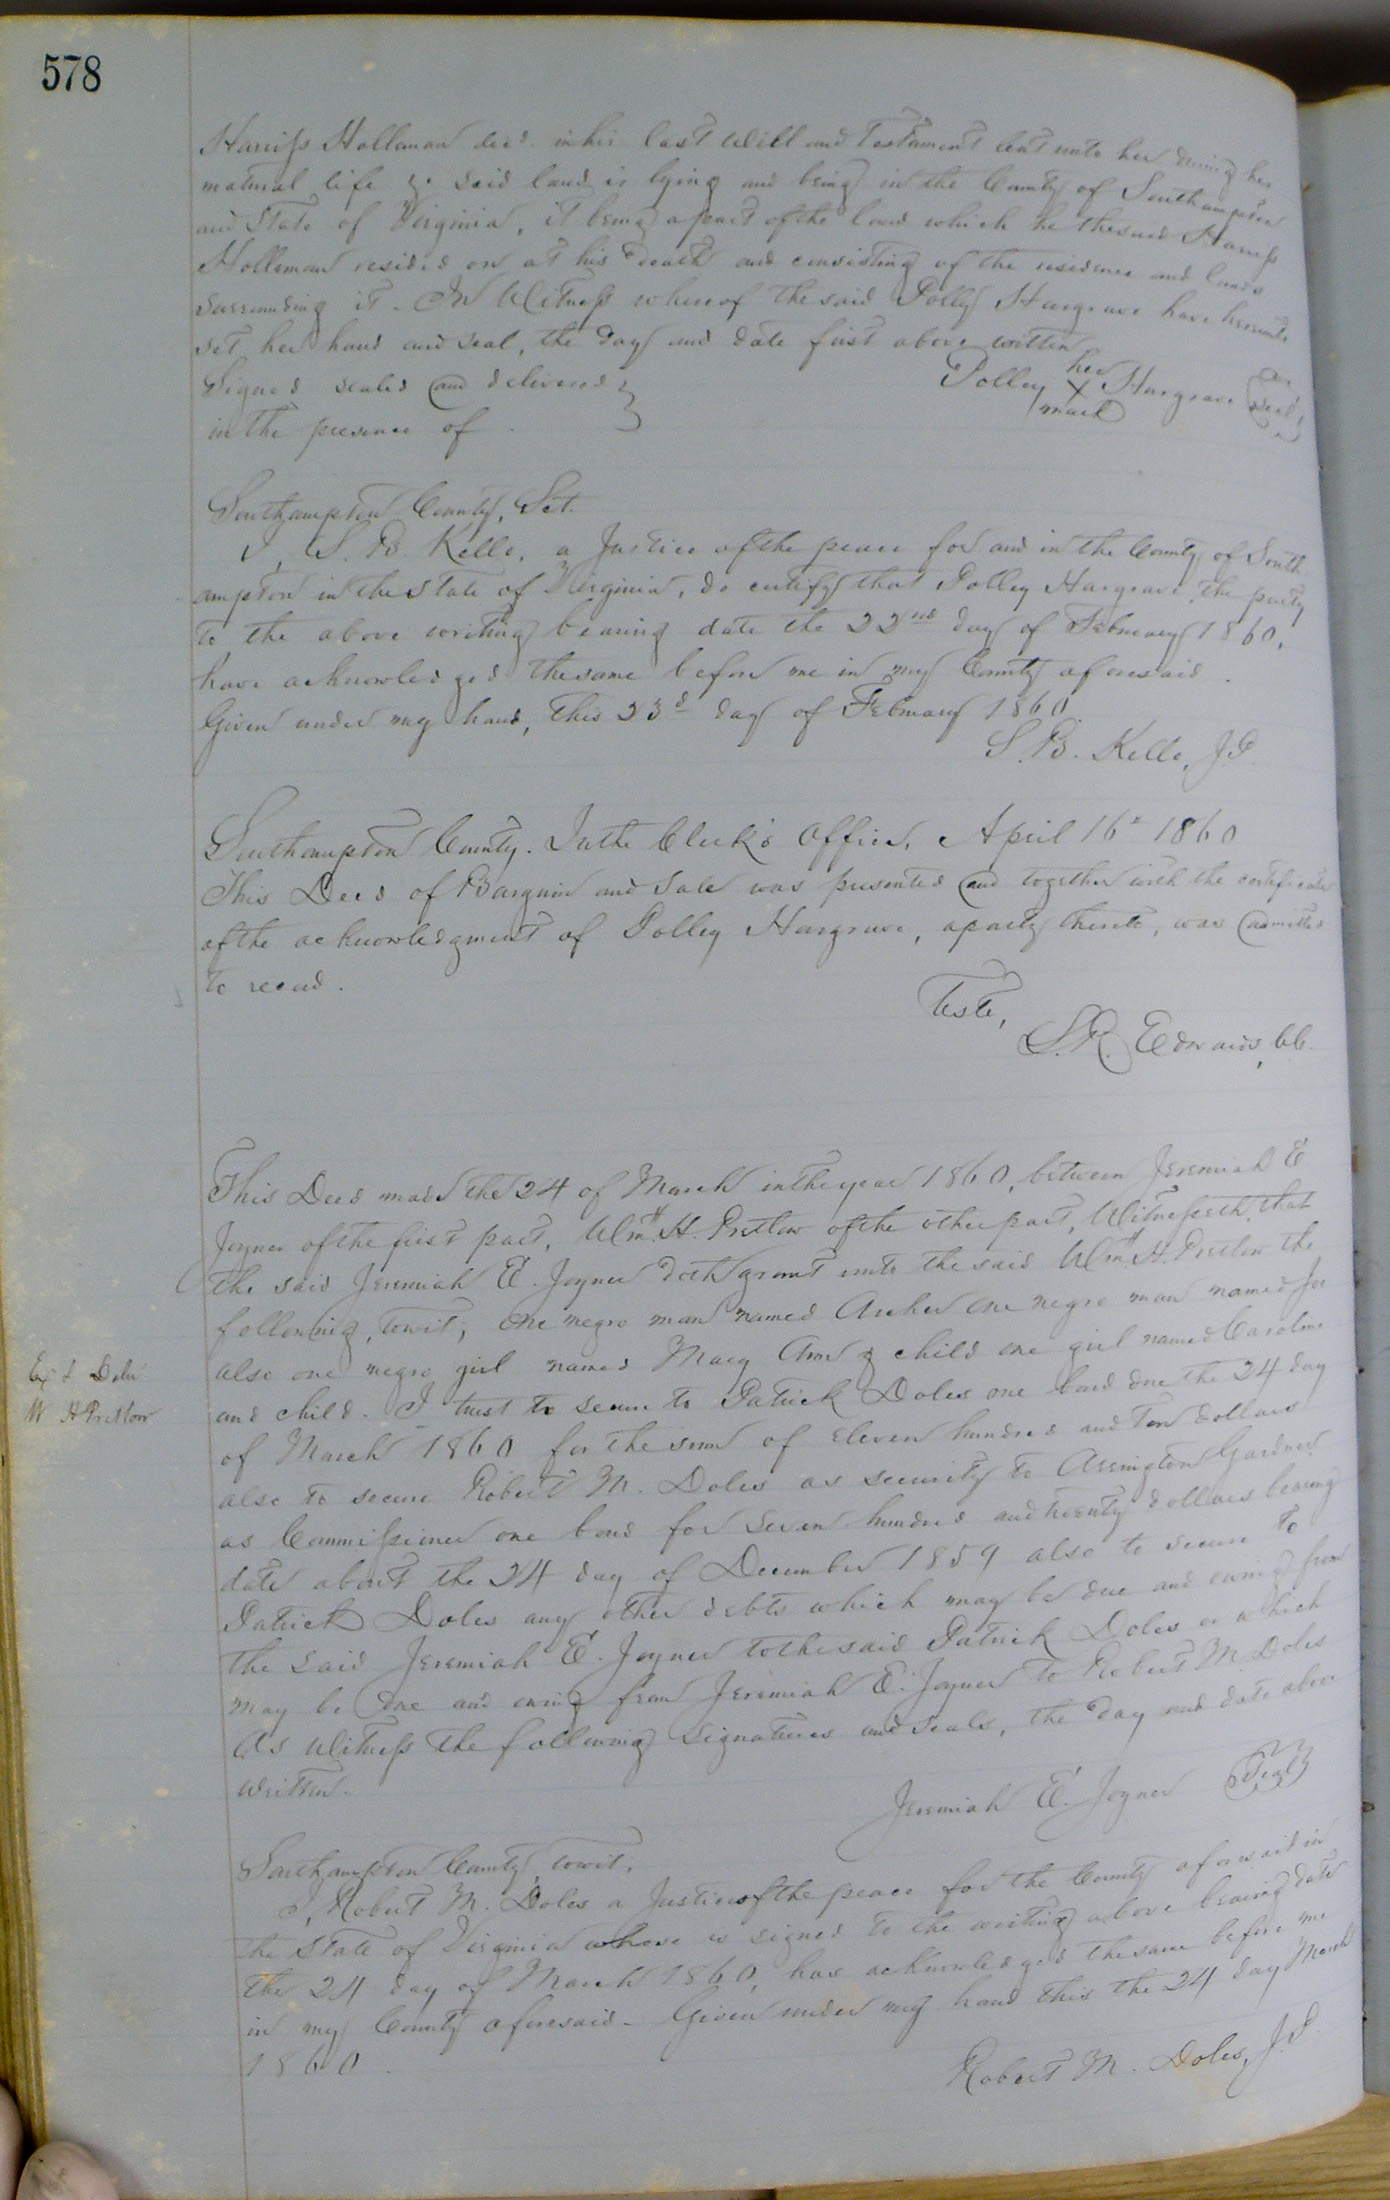 578
Harriss Holleman decd. in his last Will and Testament leant unto her during her
natural life &. said land is lying and being in the County of Southampton
and State of Virginia, it being a part of the land which he the said Harriss
Holleman resided on at his death and consisting of the residence and lands
surrounding it. In Witness whereof the said Polley Hargrave have hereunto
set her hand and seal, the day and date first above written.
Signed sealed and delivered }
in the presence of.
her
Polley X Hargrave {seal}
mark
Southampton County, Sct.
I, S. B. Kello, a Justice of the peace for and in the County of South
ampton in the State of Virginia, do certify that Polley Hargrave, the party
to the above writing bearing date the 22nd day of February 1860,
have acknowledged the same before me in my County aforesaid.
Given under my hand, this 23d day of February 1860
S. B. Kello, J.P.
Southampton County. In the Clerk's Office, April 16th 1860
This Deed of Bargain and Sale was presented and together with the certificate
of the acknowledgment of Polley Hargrave, a party thereto, was admitted
to record.
Teste,
L. R. Edwards, CC.
This Deed made the 24 of March in the year 1860, between Jeremiah E
Joyner of the first part, Wm. H. Pretlow of the other part, Witnesseth, that
the said Jeremiah E. Joyner doth grant unto the said Wm. H. Pretlow the
following, towit; one negro man named Archer one negro man named Joe
also one negro girl named Mary Ann & child one girl named Caroline
and child. I trust to secure to Patrick Doles one bond due the 24 day
of March 1860 for the sum of Eleven hundred and Ten dollars
also to secure Robert M. Doles as security to Arrington Gardner
as Commissioner one bond for seven hundred and twenty dollars bearing
date about the 24 day of December 1859 also to secure to
Patrick Doles any other debts which may be due and owing from
the said Jeremiah E. Joyner to the said Patrick Doles or which
may be due and owing from Jeremiah E. Joyner to Robert M Doles
As Witness the following signatures and seals, the day and date above
written.
Jeremiah E. Joyner {Seal}
Ex d Delv
W H Pretlow
Southampton County, towit;
I, Robert M. Doles a Justice of the peace for the County aforesaid in
the State of Virginia whose is signed to the writing above bearing date
the 24 day of March 1860, has acknowledged the same before me
in my County aforesaid. Given under my hand this the 24 day March
1860.
Robert M. Doles, J.P.